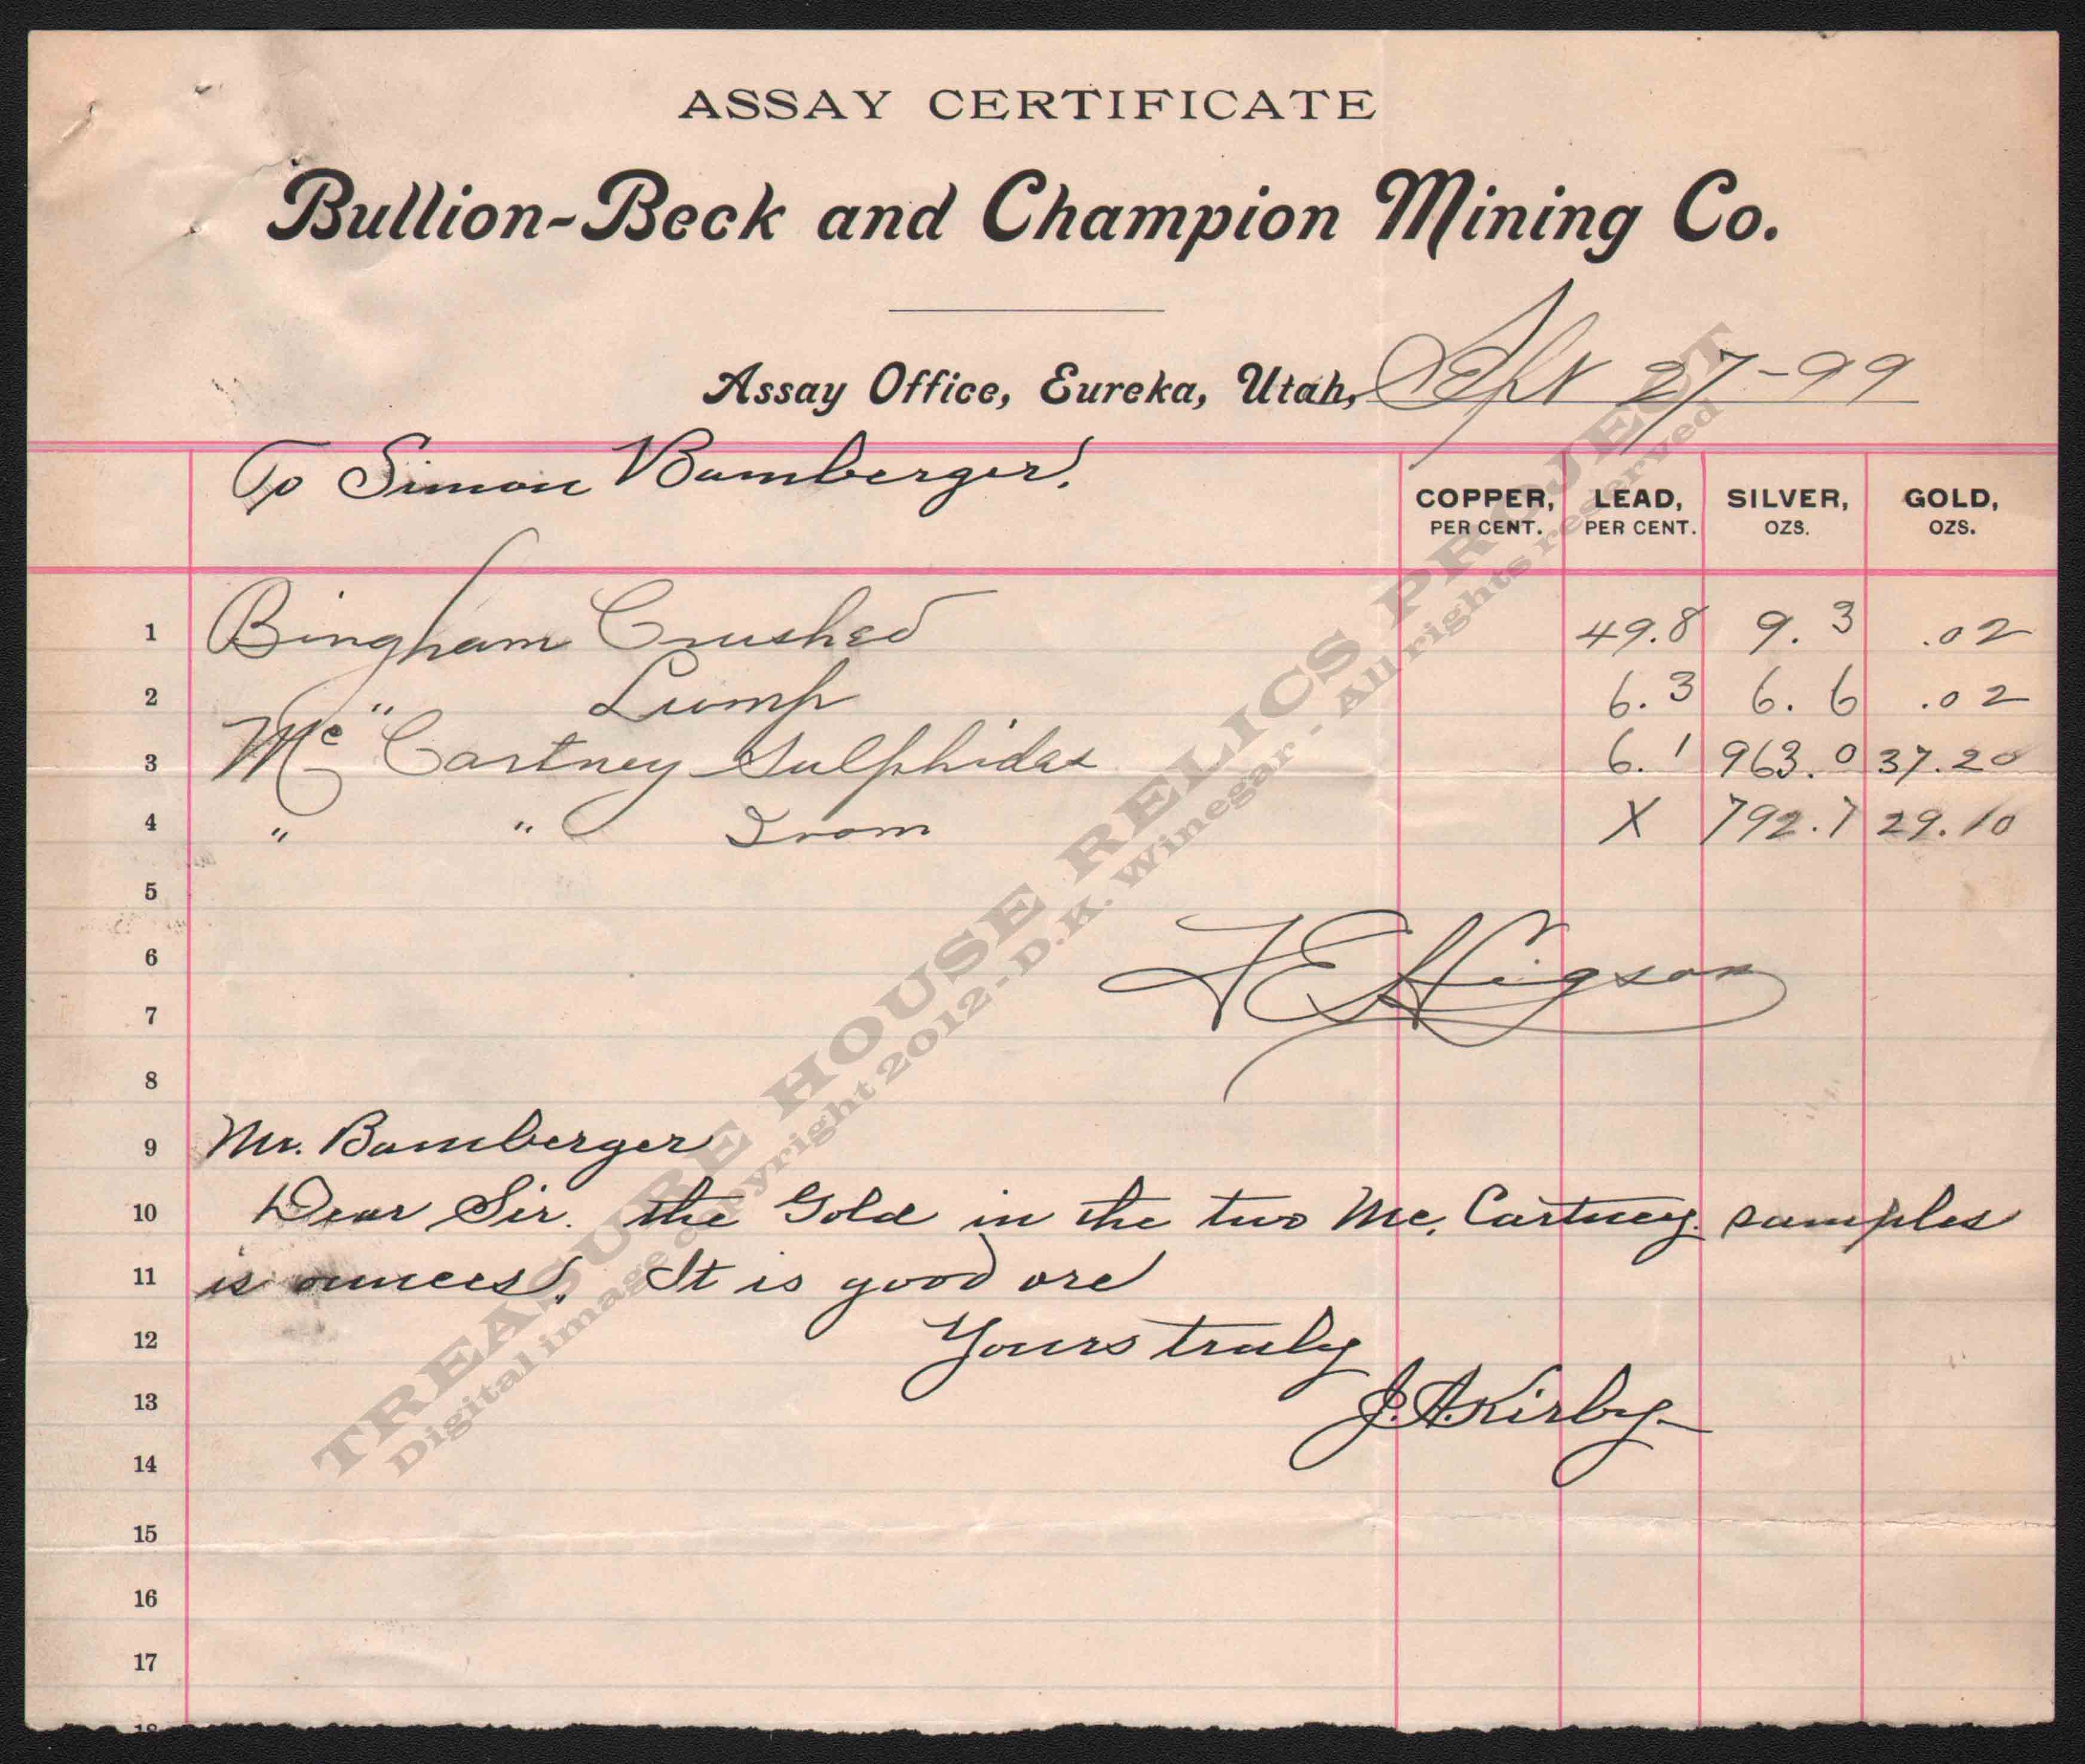 ASSAY CERTIFICATE
Bullion-Beck and Champion Mining Co.
Assay Office, Eureka, Utah, Sept 27-99
To Simon Bamberger.
COPPER, PER CENT. LEAD, PER CENT. SILVER, OZS. GOLD, OZS.
1 Bingham Crushed 49.8 9.3 .02
2 " Lump 6.3 6.6 .02
3 Mc Cartney Sulphides 6.1 963.0 37.20
4 " " Iron X 792.7 29.10
5
6 Higson
7
8
9 Mr. Bamberger
10 Dear Sir. the Gold in the two Mc. Cartney samples
11 is ounces. It is good ore
12 Yours truly
13 J.A. Kirby.
14
15
16
17
18
TREASURE HOUSE RELICS PROJECT
Digital image copyright 2012 - D.K. Winegar - All rights reserved